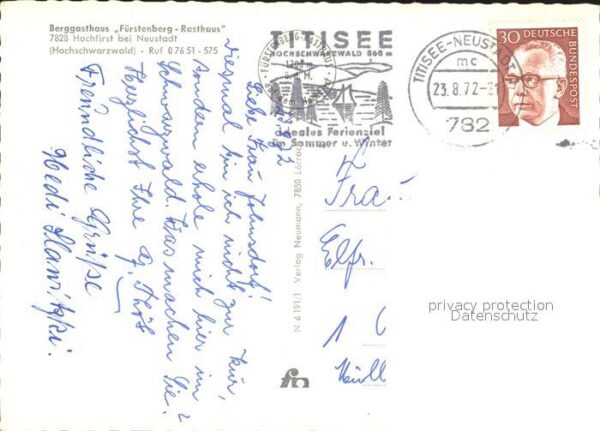 Berggasthaus „Fürstenberg-Rasthaus"
7828 Hochfirst bei Neustadt
(Hochschwarzwald) - Ruf 0 76 51 - 575
TITISEE
HOCHSCHWARZWALD 860 m
Ideales Ferienziel
im Sommer u. Winter
TITISEE-NEUSTADT
mc
23.8.72-
782
30 DEUTSCHE
BUNDESPOST
Liebe Frau
diesmal bin ich nicht zur Kur,
sondern erhole mich hier im
Schwarzwald. Was machen Sie?
Herzlichst Ihre
Freundliche Grüße
Hedi
N 6191/1 Verlag Neumann, 7850 Lörrach
fn
Frau
Elfr.
1
privacy protection
Datenschutz